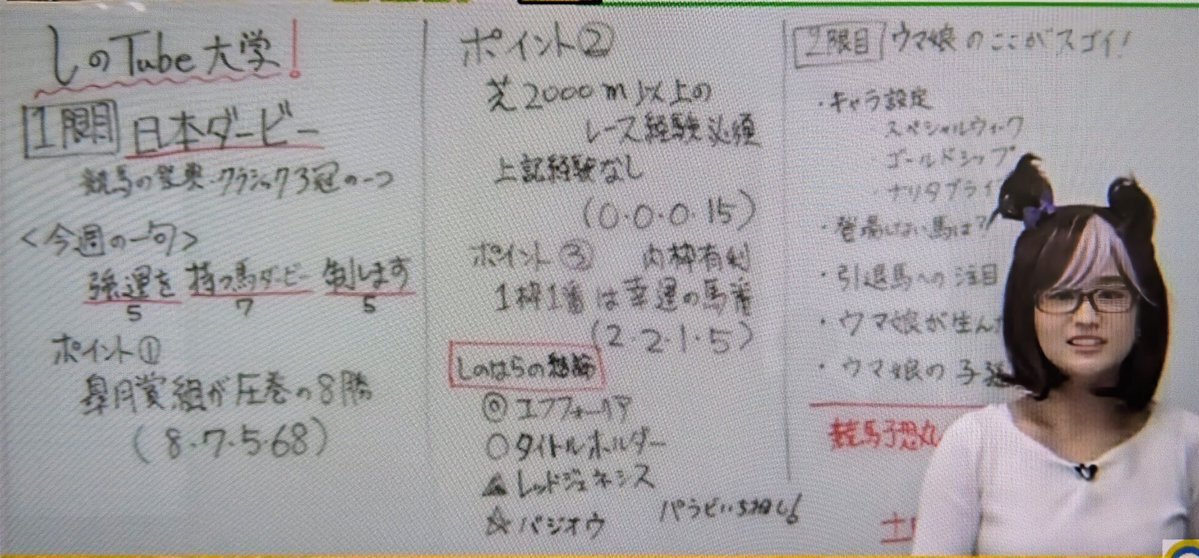 しのTube大学!
1限目 日本ダービー
競馬の祭典・クラシック3冠の一つ
<今週の一句>
強運を 持つ馬ダービー 制します
5 7 5
ポイント①
皐月賞組が圧巻の8勝
(8・7・5・68)
ポイント②
芝2000m以上の
レース経験必須
上記経験なし
(0・0・0・15)
ポイント③ 内枠有利
1枠1番は幸運の馬番
(2・2・1・5)
しのはらの
◎エフフォーリア
○タイトルホルダー
▲レッドジェネシス
☆バジオウ
2限目 ウマ娘のここがスゴイ!
・キャラ設定
スペシャルウィーク
ゴールドシップ
・ナリタブライ
・登場しない馬は?
・引退馬への注目
・ウマ娘が生んだ
・ウマ娘の予
競馬予想
土